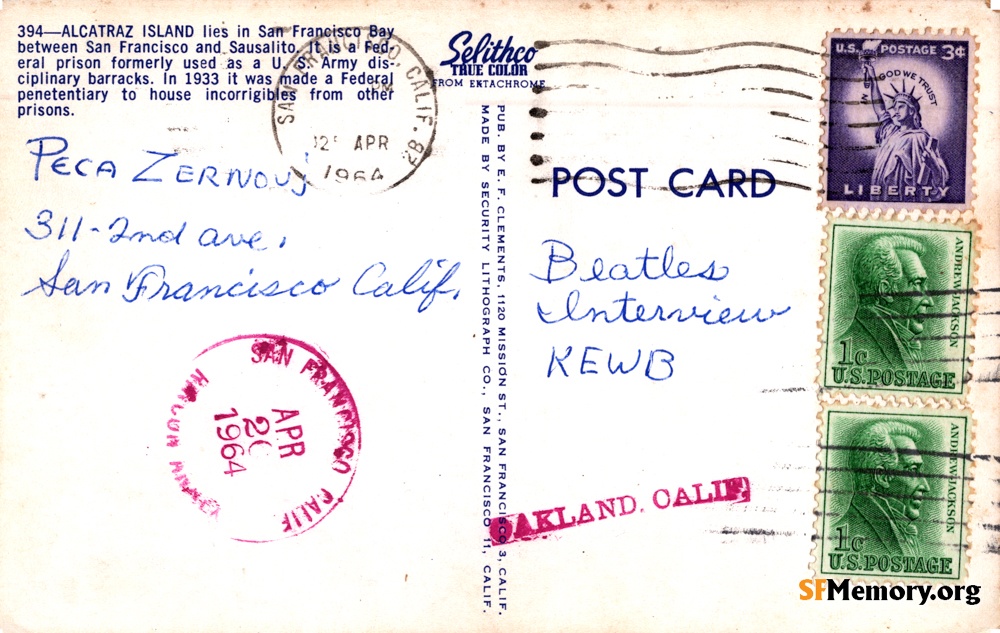 394—ALCATRAZ ISLAND lies in San Francisco Bay
between San Francisco and Sausalito. It is a Fed-
eral prison formerly used as a U. S. Army dis-
ciplinary barracks. In 1933 it was made a Federal
penetentiary to house incorrigibles from other
prisons.
Selithco
TRUE COLOR
FROM EKTACHROME
SAN FRANCISCO, CALIF.
APR
1964
U.S. POSTAGE 3¢
IN GOD WE TRUST
LIBERTY
POST CARD
PECA
311-2nd ave.
San Francisco Calif.
Beatles
Interview
KEWB
PUB. BY E. F. CLEMENTS, 1120 MISSION ST., SAN FRANCISCO 3, CALIF.
MADE BY SECURITY LITHOGRAPH CO., SAN FRANCISCO 11, CALIF.
ANDREW JACKSON
1c
U.S. POSTAGE
SAN FRANCISCO CALIF.
APR
1964
OAKLAND, CALIF.
ANDREW JACKSON
1c
U.S. POSTAGE
SFMemory.org